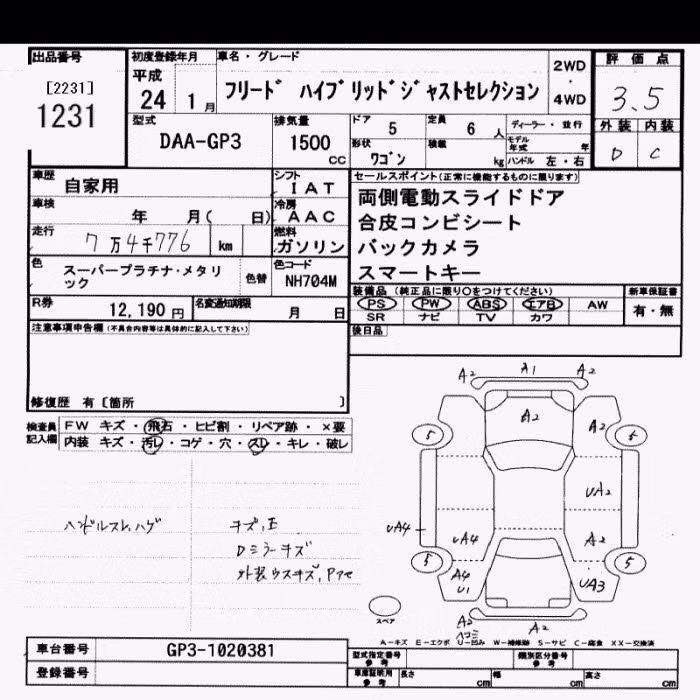 出品番号
[2231]
1231
初度登録年月
平成
24 1月
車名・グレード
フリード ハイブリッドジャストセレクション
2WD
・
4WD
評価点
3.5
外装 内装
D C
型式
DAA-GP3
排気量
1500
cc
ドア 5
定員 6 人
ディーラー・並行
形状 ワゴン
積載 kg
モデル年式 年
ハンドル 左・右
車歴 自家用
シフト
IAT
車検 年 月( 日)
冷房
AAC
走行 7万4千776 km
燃料
ガソリン
色 スーパープラチナ・メタリック
色替
色コード
NH704M
R券 12,190円
名変通知期限 月 日
セールスポイント(正常に機能するものに限ります)
両側電動スライドドア
合皮コンビシート
バックカメラ
スマートキー
装備品(純正品に限り○をつけてください)
新車保証書
PS PW ABS エアB AW
有・無
SR ナビ TV カワ
後日品
注意事項申告欄(不具合内容等は具体的に記入して下さい)
修復歴 有〔箇所 〕
検査員記入欄
FW キズ・飛石・ヒビ割・リペア跡・×要
内装 キズ・汚レ・コゲ・穴・スレ・キレ・破レ
ハンドルスレ,ハゲ
キズ,E
Dミラーキズ
外装ウスキズ,
A2 A1 A2
A2 A2
5 5
UA2
UA4 UA4 A2
5 5
A4 U1 UA3
A2 A2
スペア
A-キズ E-エクボ U-凹み W-補修跡 S-サビ C-腐食 XX-交換済
車台番号 GP3-1020381
登録番号
型式指定番号 参考
類別区分番号 参考
車庫証明用 参考
長さ cm 幅 cm 高さ cm